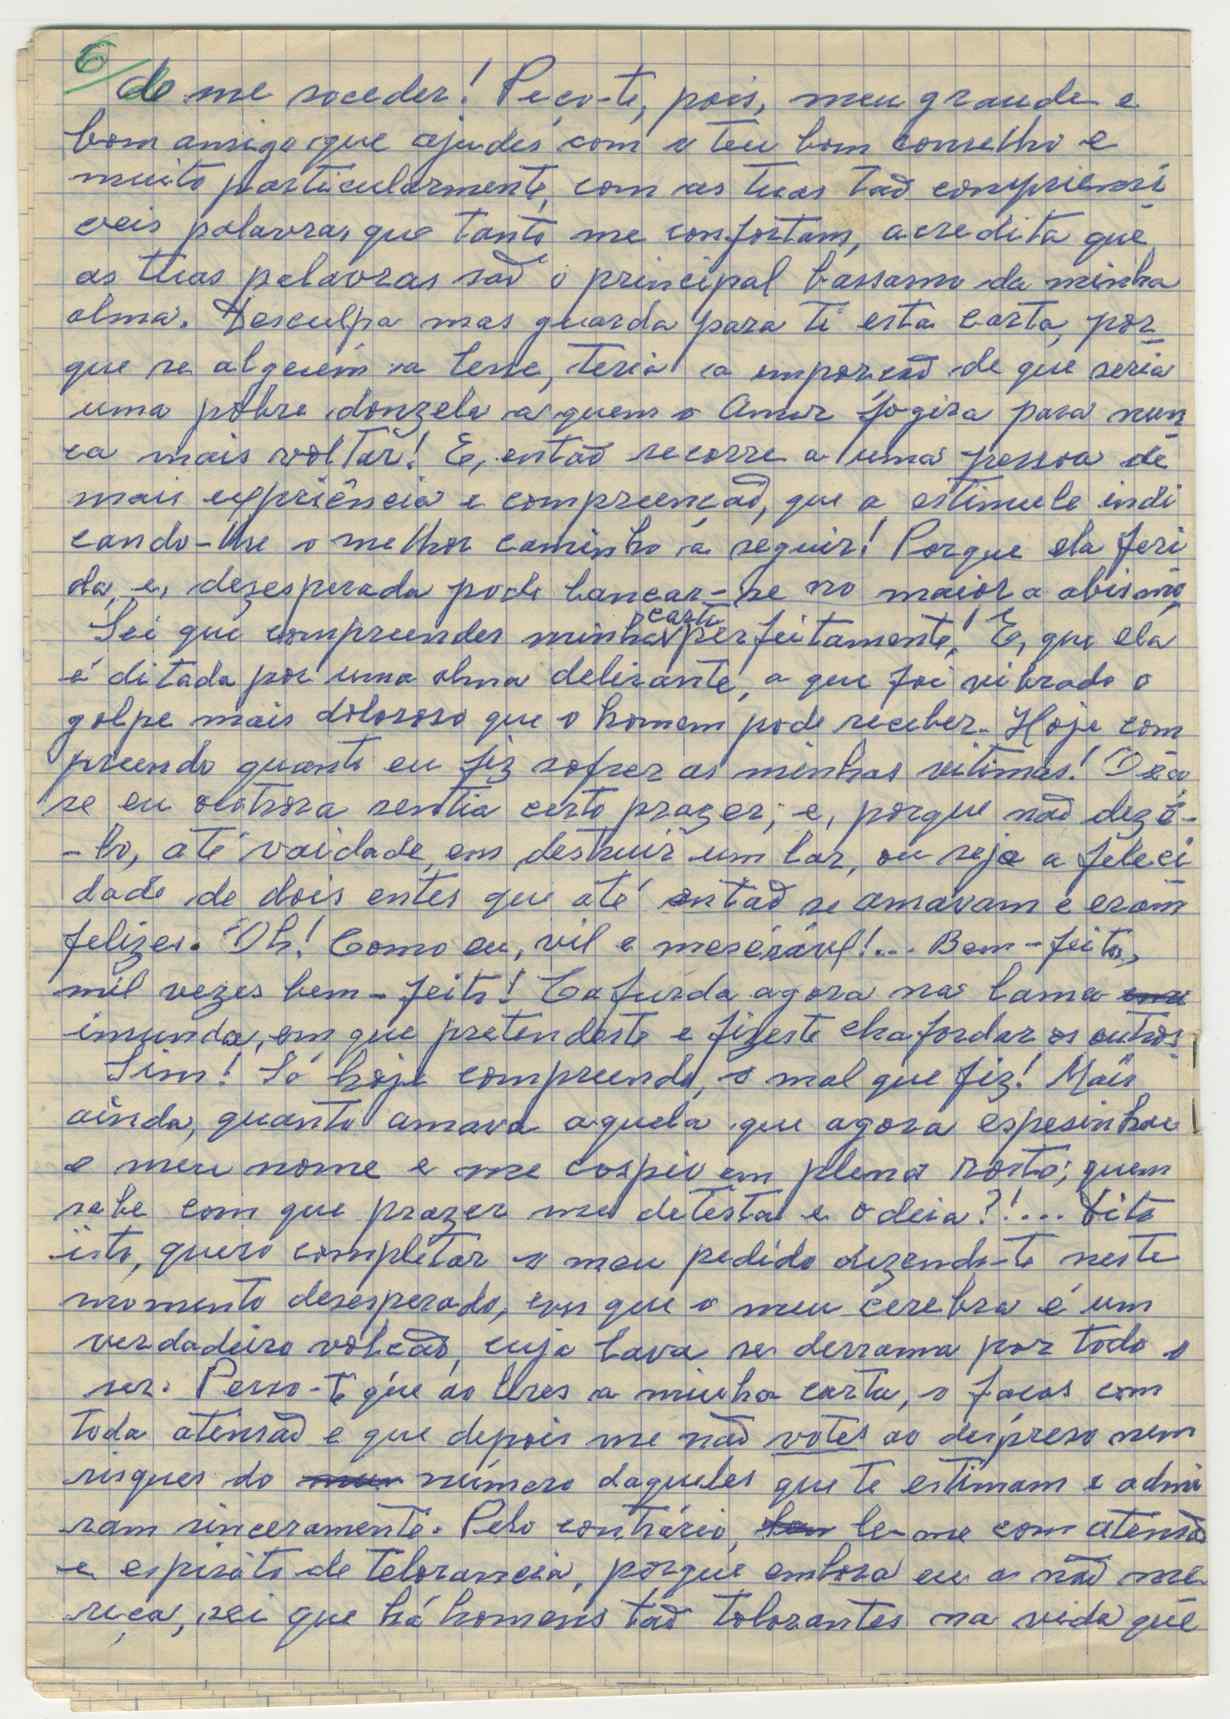 6/
de me soceder! Peço-te, pois, meu grande e
bom amigo que ajudes com o teu bom conselho e
muito particularmente, com as tuas tão compriensi
veis palavras que tanto me confortam, acredita que
as tuas palavras são o principal bassamo da minha
alma. Desculpa mas guarda para ti esta carta, por
que se alguém a lesse, teria a empoização de que seria
uma pobre donzela a quem o Amor fogira para nun
ca mais voltar! E, então recorre a uma pessoa de
mais expriência e compreenção, que a estimule indi
cando-lhe o melhor caminho a seguir! Porque ela feri
da, e, desesperada pode lançar-se no maior a abismo
Sei que compreendes minha carta perfeitamente! E, que ela
é ditada por uma alma delirante, a que foi vibrado o
golpe mais doloroso que o homem pode receber. Hoje com
preendo quanto eu fiz sofrer as minhas vitimas!
se eu outrora sentia certo prazer; e, porque não dezê-
-lo, até vaidade, em destruir um lar, ou seja a feleci
dade de dois entes que até então se amavam e eram
felizes. Oh! Como eu, vil e meserável!... Bem-feito,
mil vezes bem-feito! Cafurda agora na lama
imunda, em que pretendeste e fizeste chafordar os outros.
Sim! Só hoje compreendo, o mal que fiz! Mais
ainda, quanto amava aquela que agora espesinhou
o meu nome e me cospiu em pleno rosto; quem
sabe com que prazer me detesta e odeia?!... Dito
isto, quero completar o meu pedido dezendo-te neste
momento desesperado, em que o meu cérebro é um
verdadeiro volcão, cuja lava se derrama por todo o
ser. Pesso-te que ao leres a minha carta, o faças com
toda atensão e que depois me não votes ao despreso nem
risques do número daqueles que te estimam e admi
ram sinceramente. Pelo contrário, le-me com atensão
e espirito de telorancia, porque embora eu as não me
reça, sei que há homens tão tolorantes na vida que